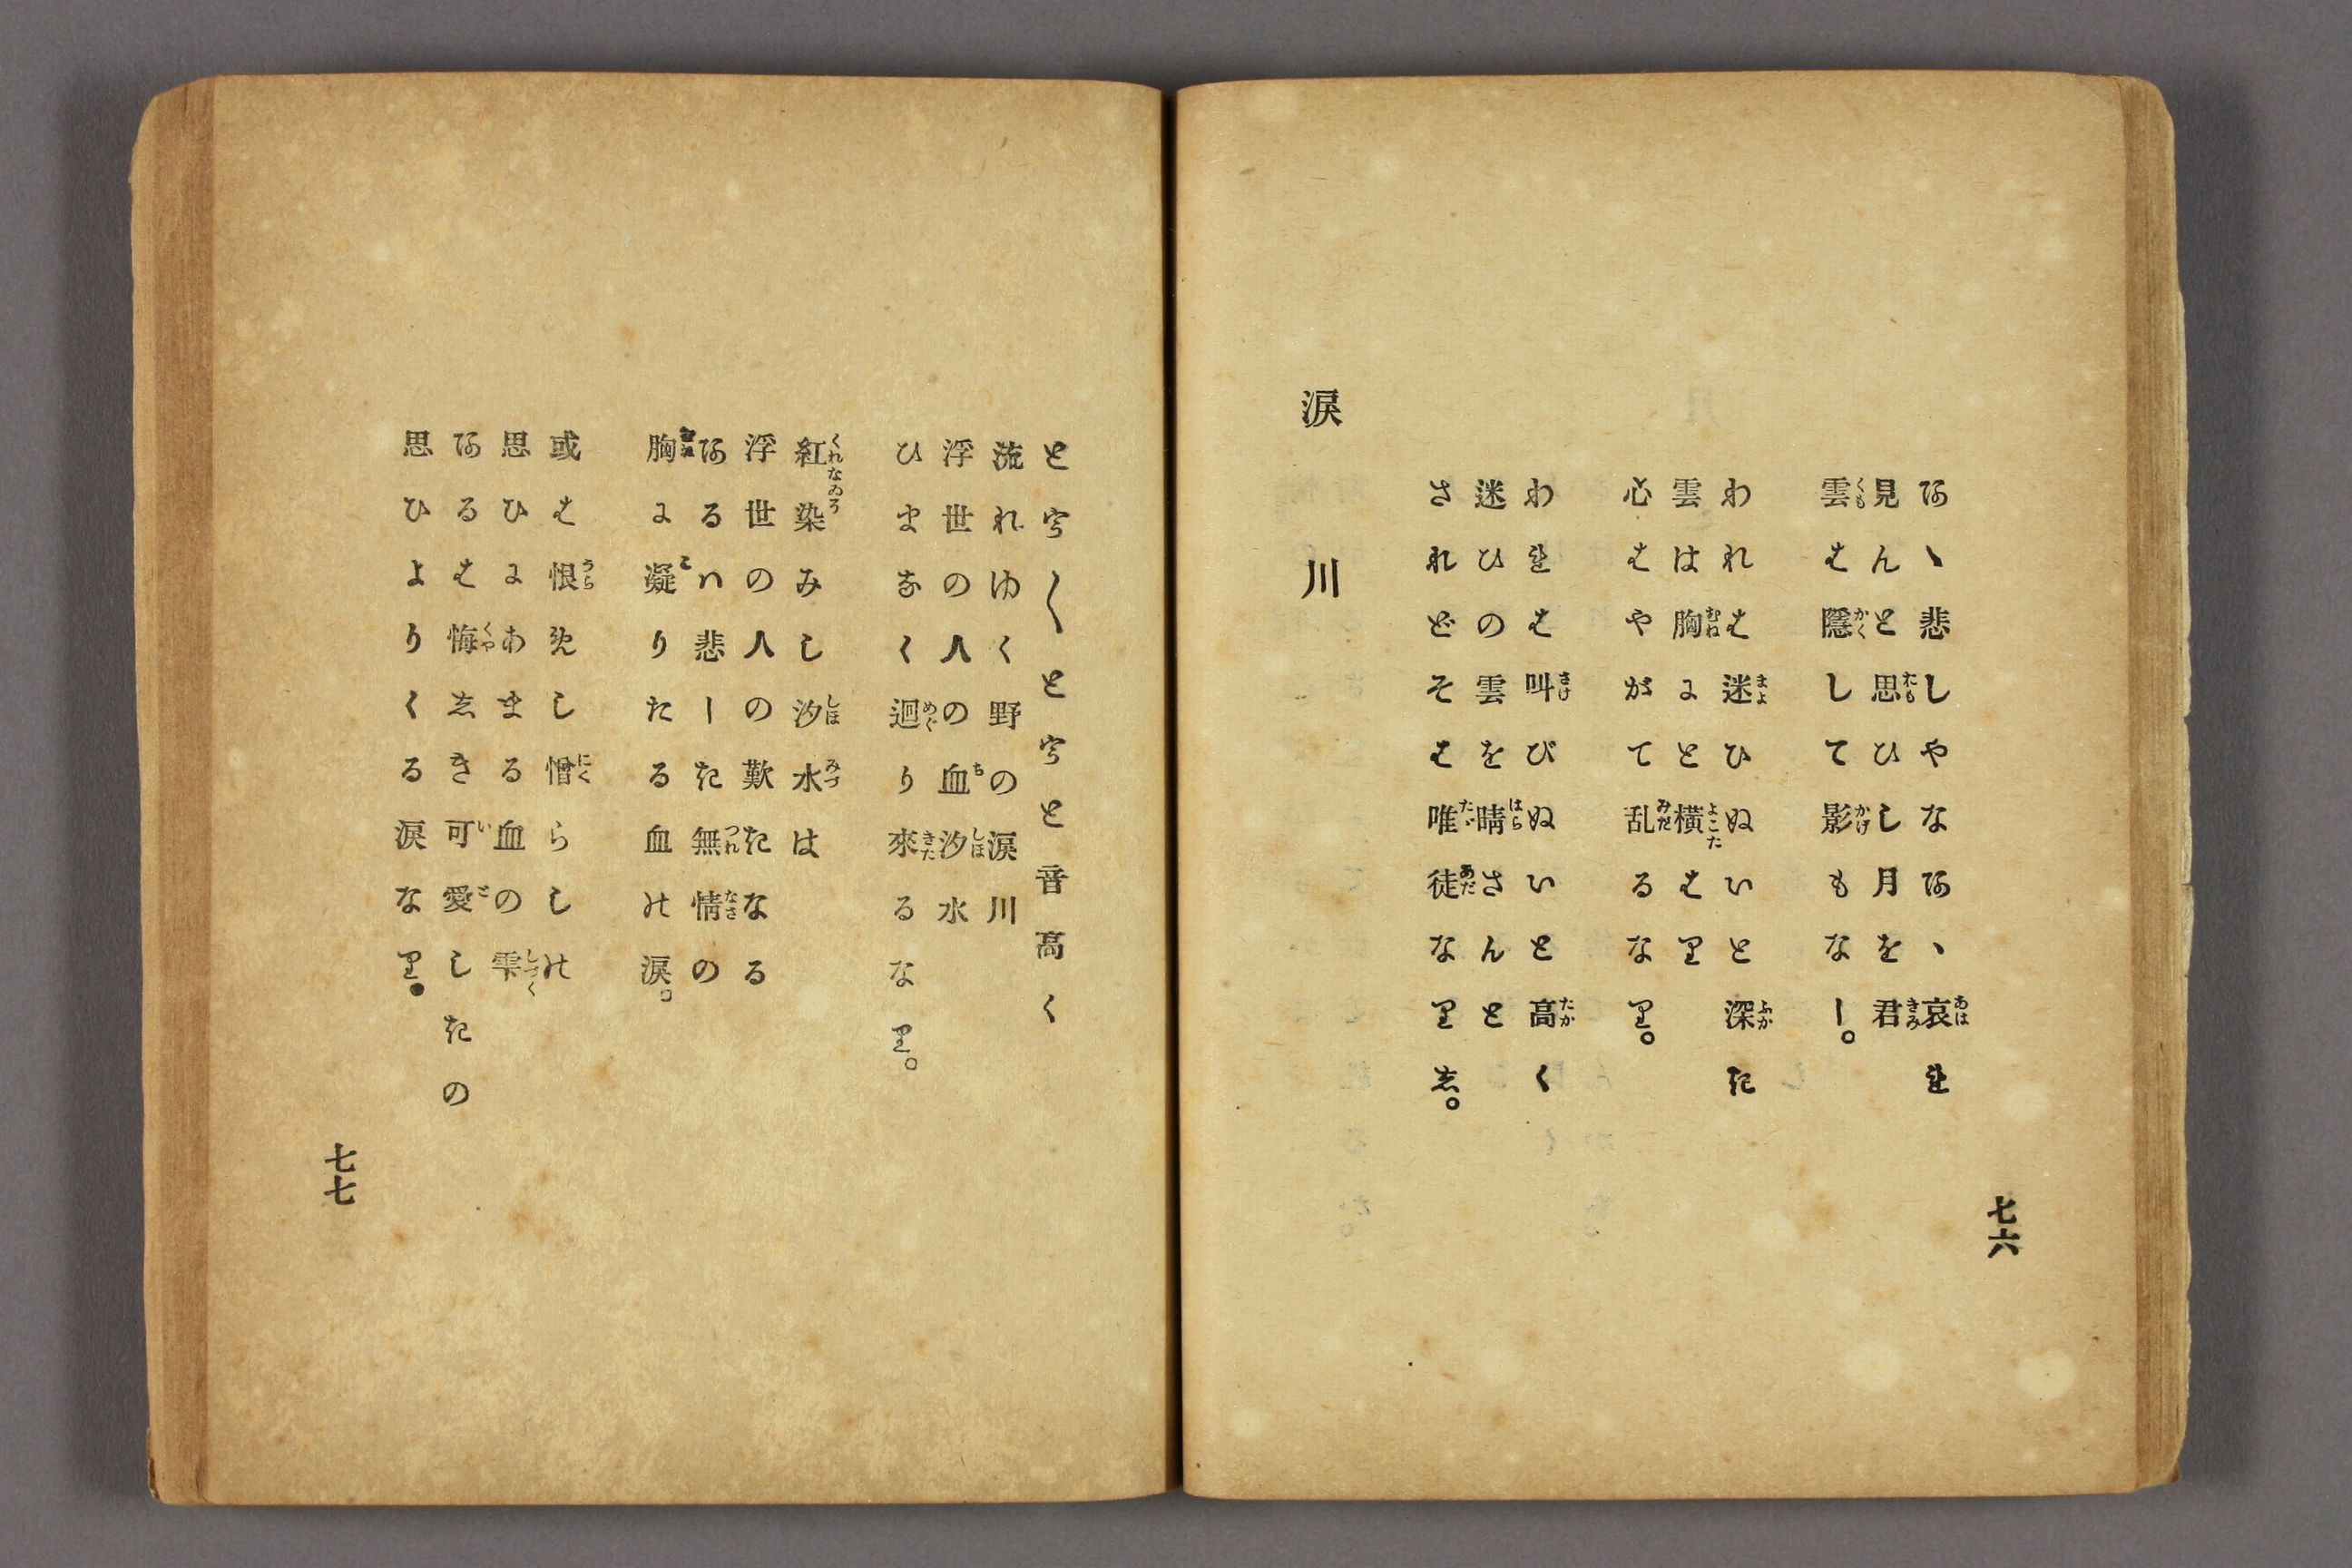 七六
あゝ悲しやなあゝ哀れ
見んと思ひし月を君
雲は隱して影もなし。
われは迷ひぬいと深き
雲は胸にと横はり
心はやがて乱るなり。
われは叫びぬいと高く
迷ひの雲を晴さんと
されどそは唯徒なりし。
涙川
とう〳〵とうと音高く
流れゆく野の涙川
浮世の人の血汐水
ひまなく迴り來るなり。
紅染みし汐水は
浮世の人の歎きなる
あるハ悲しき無情の
胸に凝りたる血の涙。
或は恨めし憎らしの
思ひにあまる血の雫
あるは悔しき可愛しきの
思ひよりくる涙なり。
七七